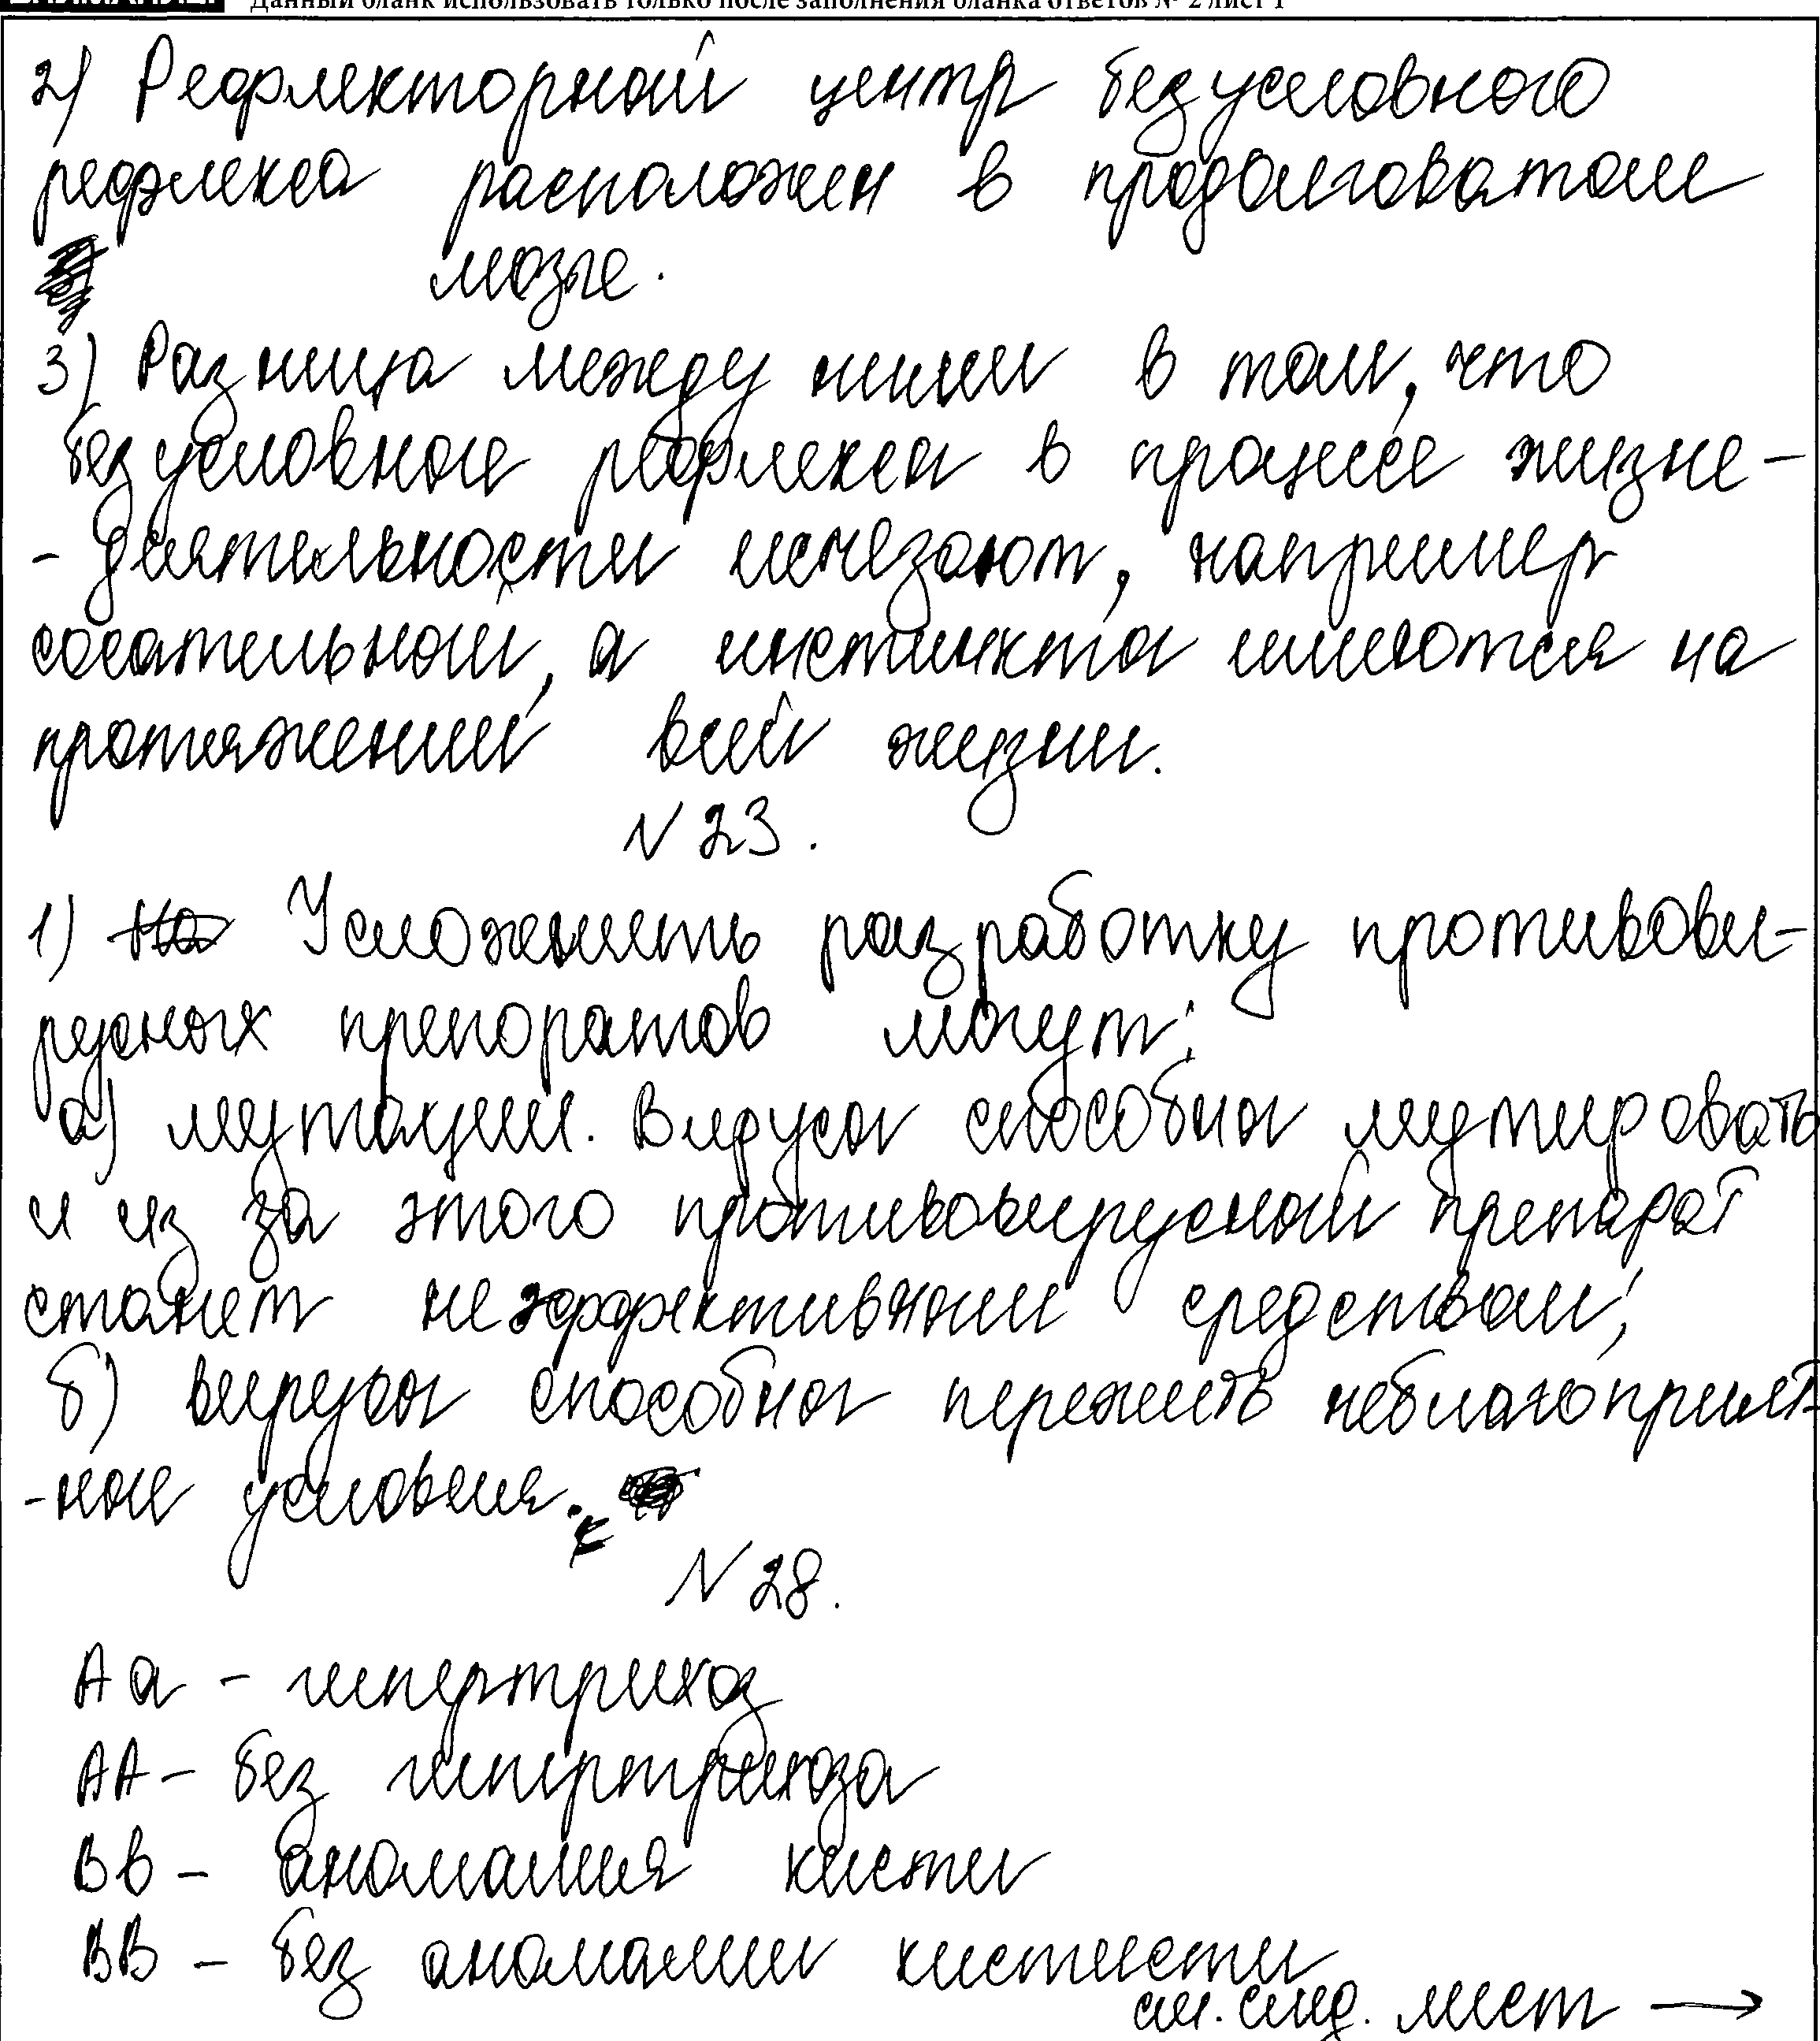 Данный бланк использовать только после заполнения бланка ответов № 2 лист 1
2) Рефлекторный центр безусловного
рефлекса расположен в продолговатом
мозге.
3) Разница между ними в том, что
безусловные рефлексы в процессе жизне-
- деятельности исчезают, например
сосательный, а инстинкты имеются на
протяжении всей жизни.
N 23.
1) Усложнить разработку противови-
русных препоратов могут:
а) мутации. Вирусы способны мутировать
и из за этого противовирусный препарат
станет неэффективным средством;
б) вирусы способны пережить неблагоприят-
-ные условия.
N 28.
Аа - гипертрихоз
АА - без гипертрихоза
Вв - аномалия кисти
ВВ - без аномалии кистисти
см. след. лист →